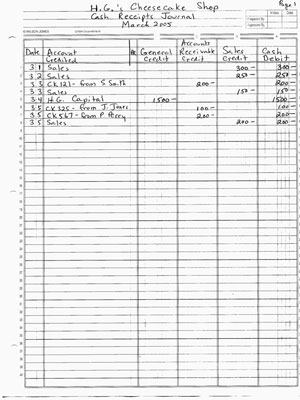 Page 1
H.G.'s Cheesecake Shop
Cash Receipts Journal
March 2005
Date Account Credited PR General Credit Accounts Receivable Credit Sales Credit Cash Debit
3 1 Sales 300 — 300 —
3 2 Sales 250 — 250 —
3 3 CK 121 - from S. Smith 200 — 200 —
3 3 Sales 150 — 150 —
3 4 H.G. Capital 1500 — 1500 —
3 5 CK 325 - from J. Jones 100 — 100 —
3 5 CK 567 - from P. Perry 200 — 200 —
3 5 Sales 200 — 200 —